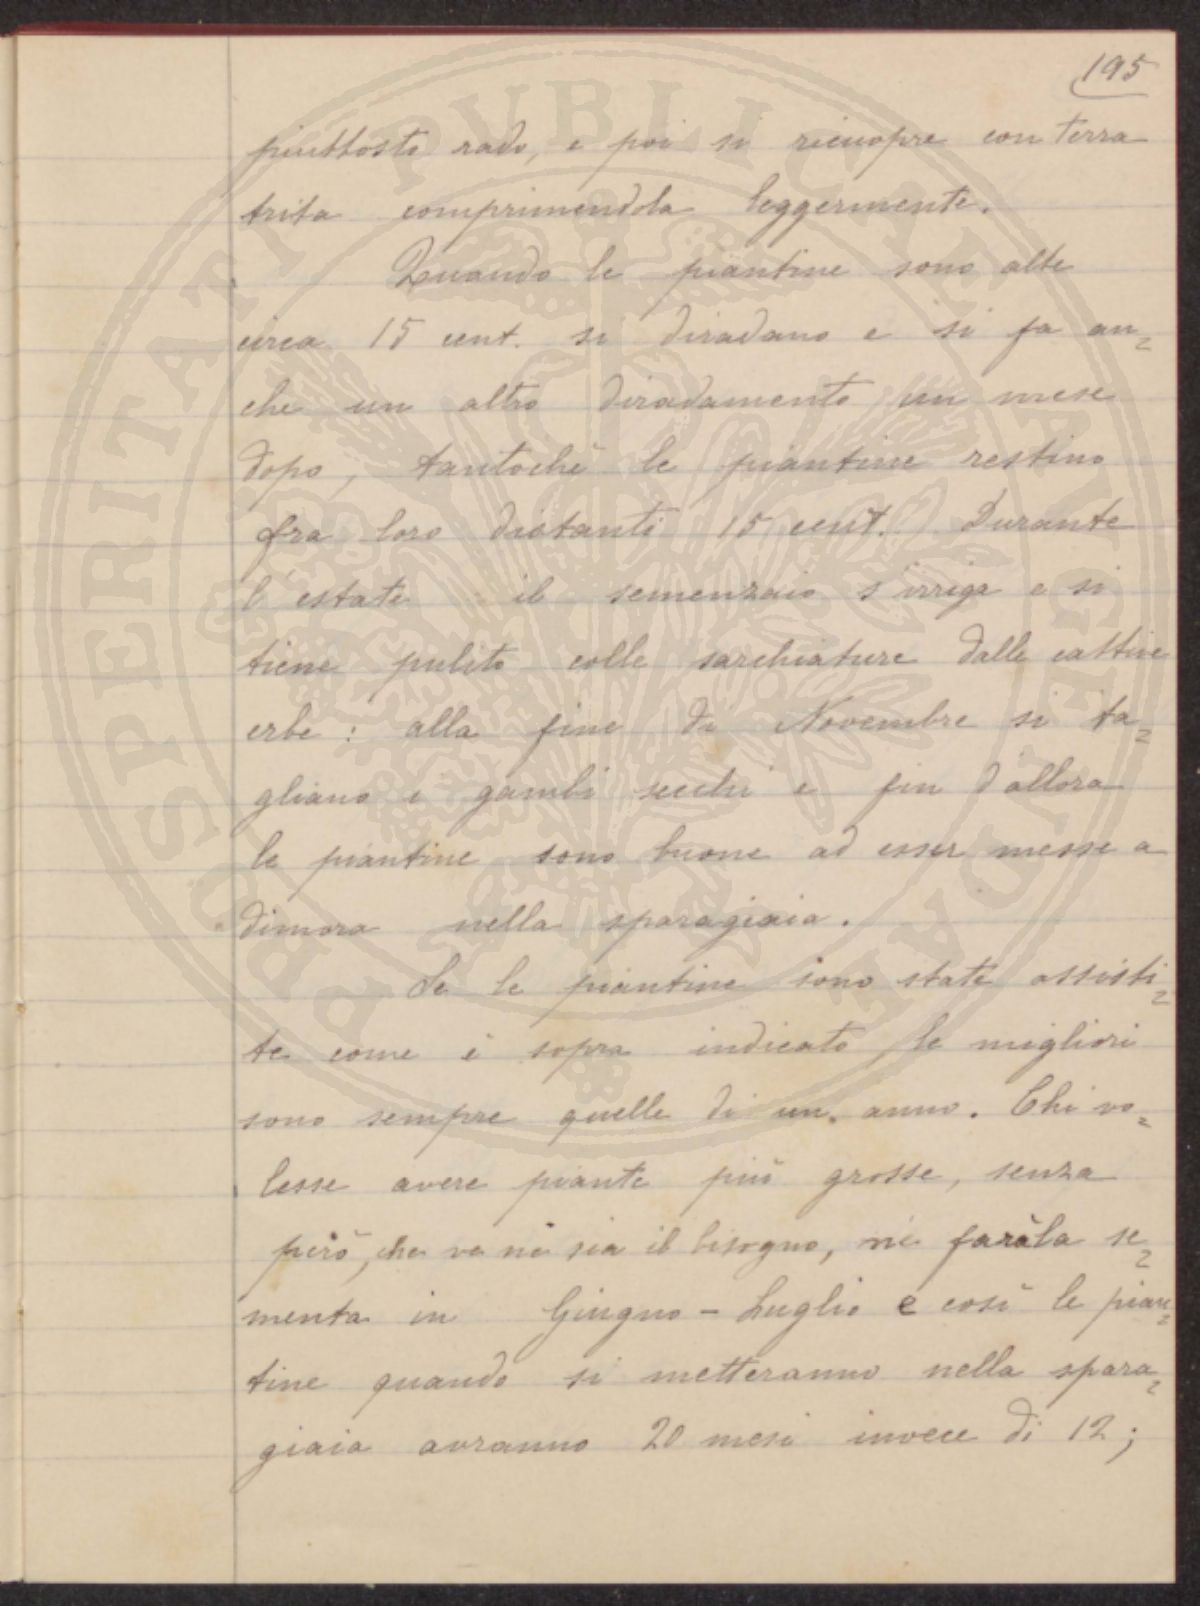 195
piuttosto rado, e poi si ricuopre con terra
trita comprimendola leggermente.
Quando le piantine sono alte
circa 15 cent. si diradano e si fa an=
che un altro diradamento un mese
dopo, tantochè le piantine restino
fra loro distanti 15 cent. Durante
l'estate il semenzaio s'irriga e si
tiene pulito colle sarchiature dalle cattive
erbe: alla fine di Novembre si ta=
gliano i gambi secchi e fin d'allora
le piantine sono buone ad esser messe a
dimora nella sparagiaia.
Se le piantine sono state assisti=
te come è sopra indicato, le migliori
sono sempre quelle di un anno. Chi vo=
lesse avere piante più grosse, senza
però, che ve ne sia il bisogno, ne farà la se=
menta in Giugno - Luglio e così le pian=
tine quando si metteranno nella spara=
giaia avranno 20 mesi invece di 12;
PROSPERITATI PVBLICAE AVGENDAE